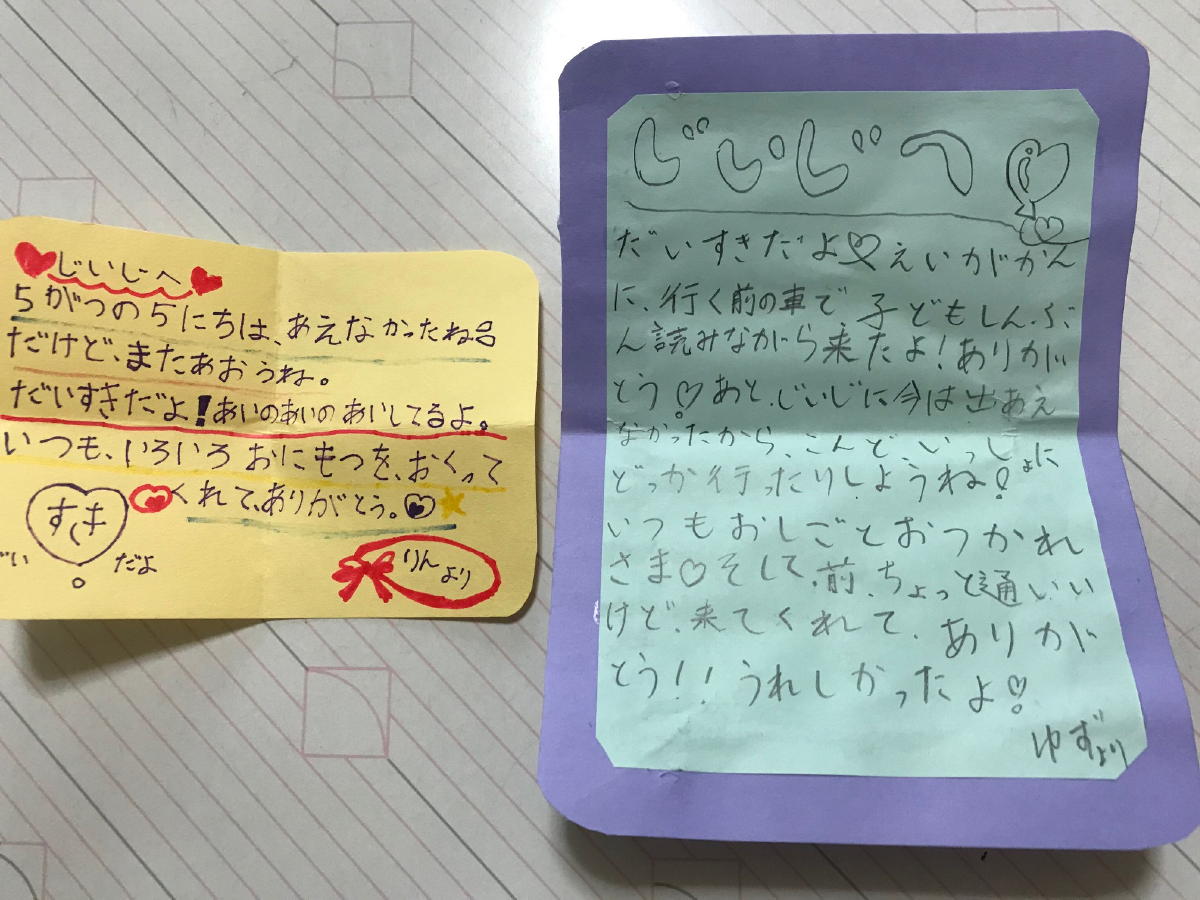 じいじへ
5がつの5にちは、あえなかったね
だけど、またあおうね。
だいすきだよ!あいのあいのあいしてるよ。
いつも、いろいろおにもつを、おくって
くれて、ありがとう。
すき
だよ
りんより
じいじへ
だいすきだよ♡えいがかん
に、行く前の車で子どもしんぶ
ん読みながら来たよ!ありが
とう!あと、じいじに今は出あえ
なかったから、こんど、いっしょに
どっか行ったりしようね!
いつもおしごとおつかれ
さま♡そして、前、ちょっと通いい
けど、来てくれて、ありが
とう!!うれしかったよ!
ゆずより